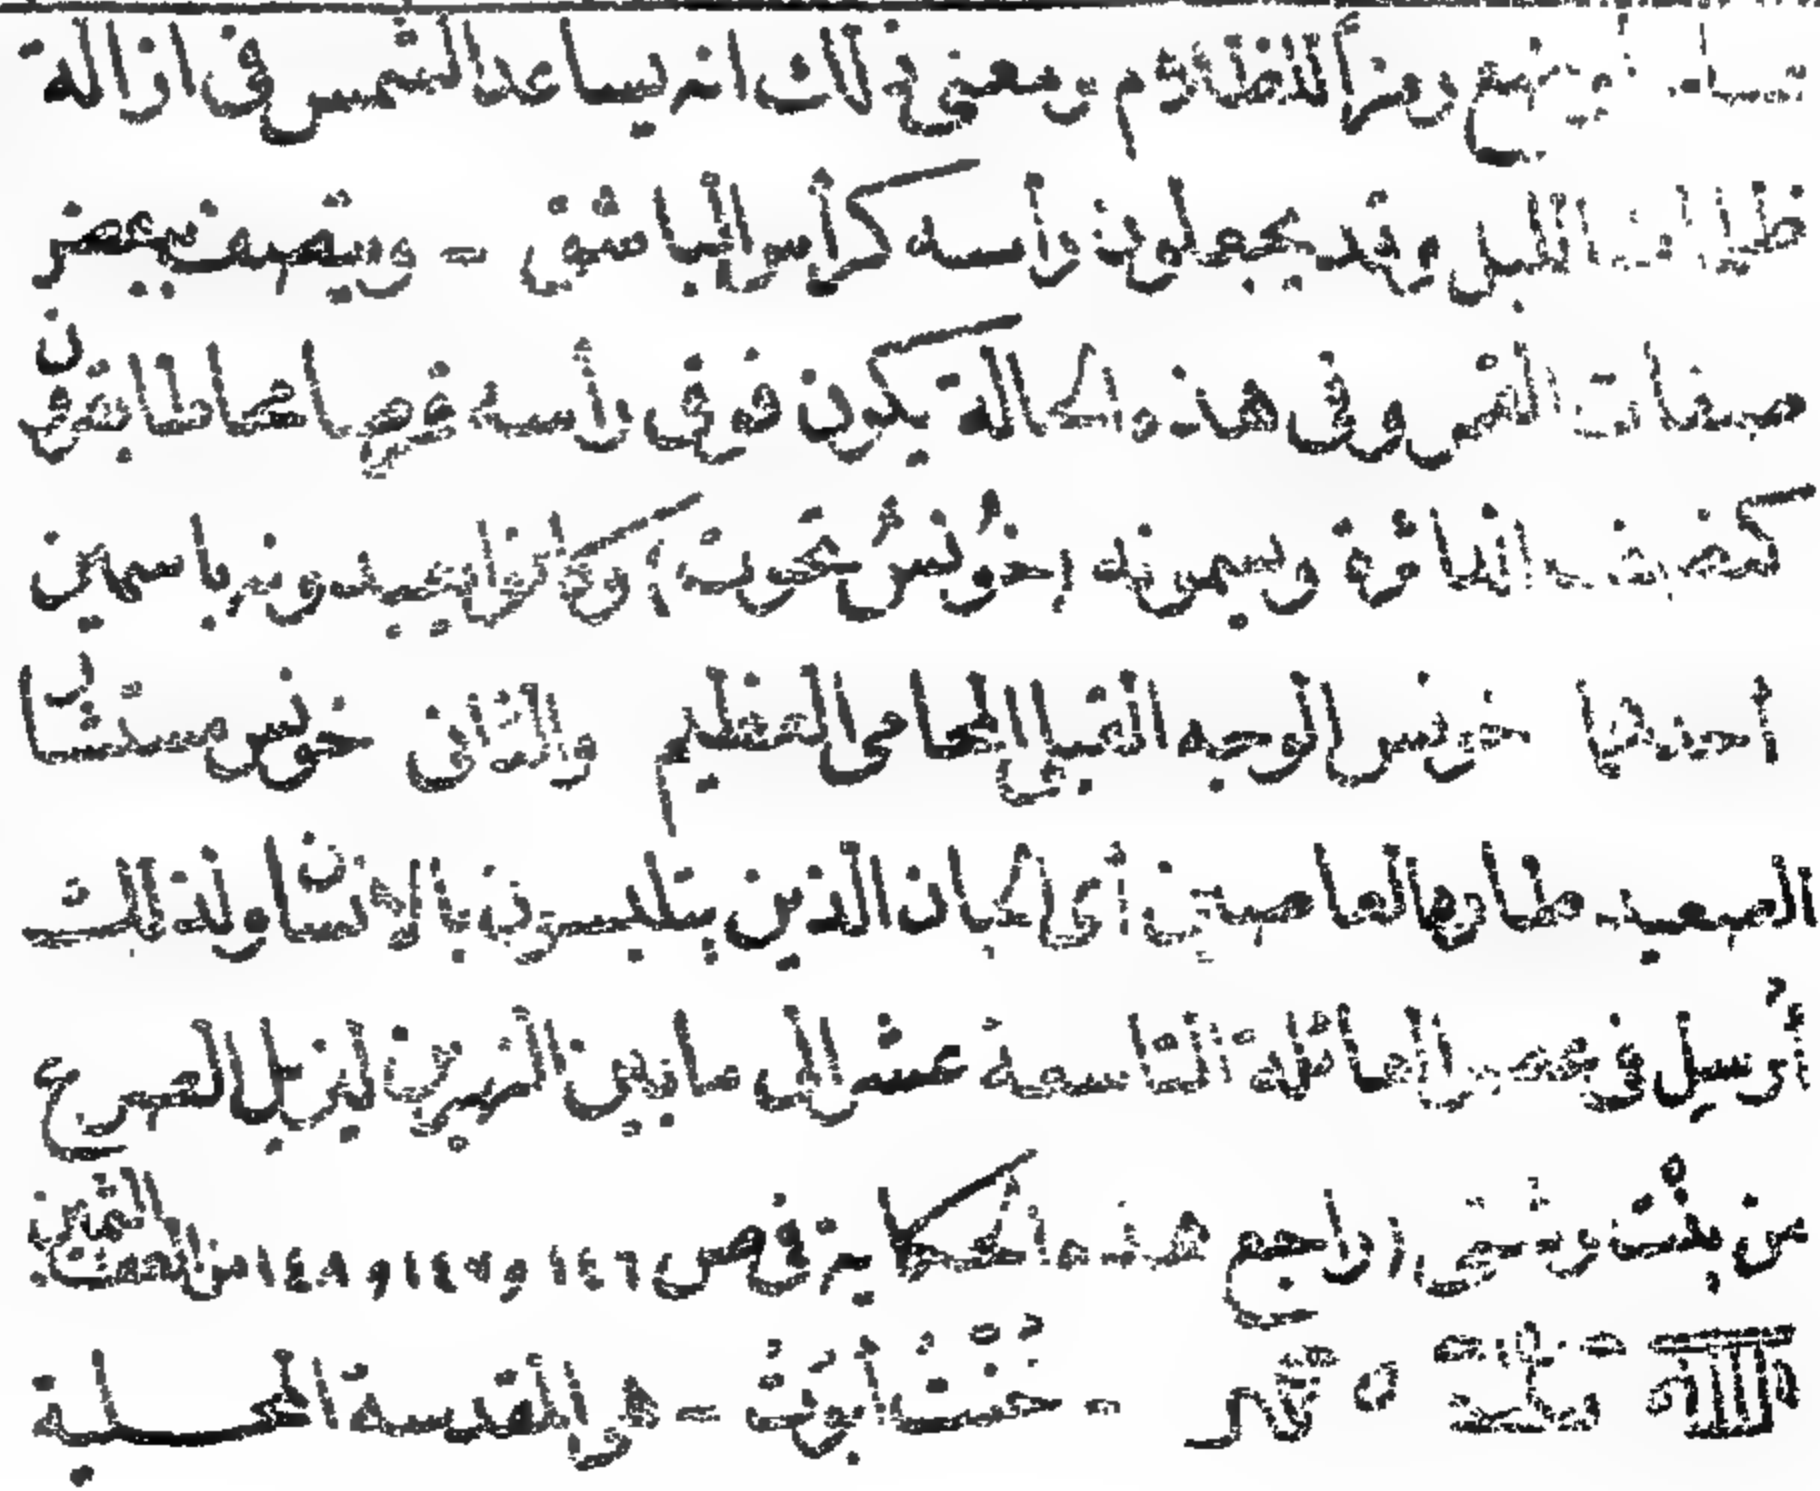 رمزاً للظلام ومعنى ذلك انه يساعد الشمس فى ازالة
ظلمات الليل وقد يجعلون رأسه كرأس الباشق - ويتصف ببعض
صفات القمر وفى هذه الحالة يكون فوق رأسه قرص محاطا بقرون
ويسمونه (خُونْسُ تحوت) وكانوا يعبدونه باسمين
أحدهما خونس الوجه القبلى المحامى العظيم والثانى خونس مستشار
الصعيد طارد العاصين أى الجان الذين يتلبسون بالانسان ولذلك
أُرسِل فى عصر العائلة التاسعة عشر الى ما بين النهرين ليزيل الصرع
من بِنْت رشتى (راجع هذه الحكاية فى ص ١٤٦ و ١٤٧ و ١٤٨ من العقد الثمين
- خنْتُ ابوت - هى المقدسة المحلية